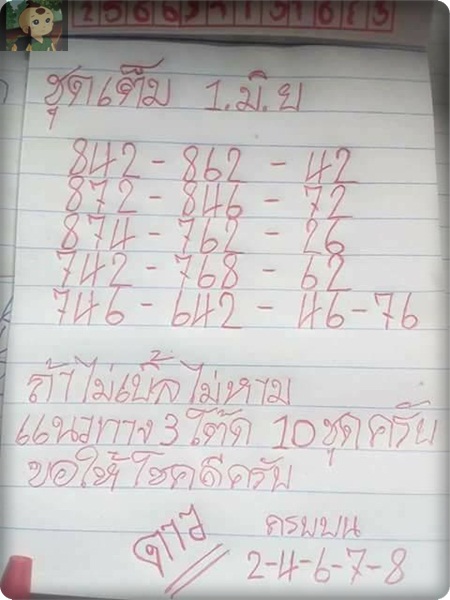 ชุดเต็ม 1.มิ.ย
842 - 862 - 42
872 - 846 - 72
874 - 762 - 26
742 - 768 - 62
746 - 642 - 46-76
ถ้าไม่เบิ้ล ไม่หาม
แนวทาง 3 โต๊ด 10 ชุด ครับ
ขอให้ โชคดีครับ
ดาว
ครบบน
2-4-6-7-8